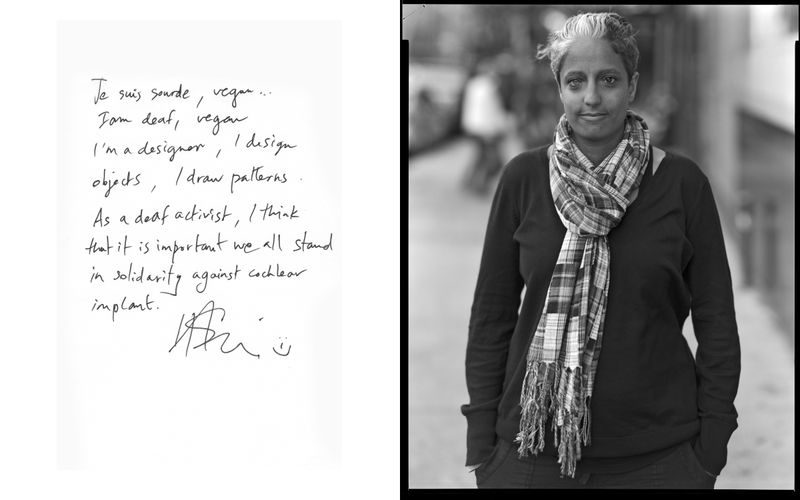 Je suis sourde, vegan...
I am deaf, vegan
I'm a designer, I design
objects, I draw patterns.
As a deaf activist, I think
that it is important we all stand
in solidarity against cochlear
implant.